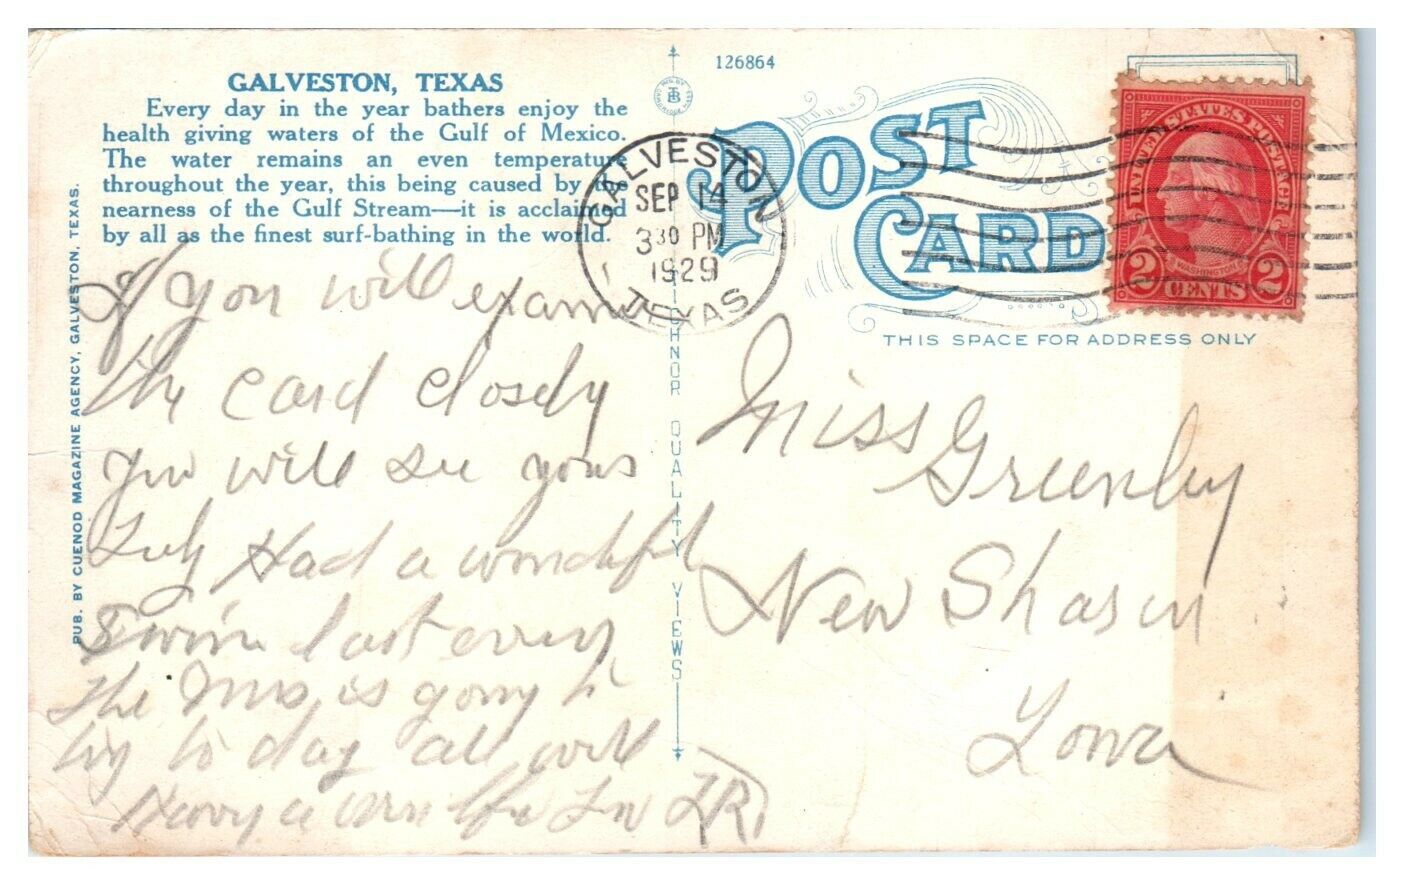 GALVESTON, TEXAS
Every day in the year bathers enjoy the
health giving waters of the Gulf of Mexico.
The water remains an even temperature
throughout the year, this being caused by the
nearness of the Gulf Stream—it is acclaimed
by all as the finest surf-bathing in the world.
PUB. BY CUENOD MAGAZINE AGENCY, GALVESTON, TEXAS.
If you will exam
the card closely
you will see yours
Had a wonderful
swim last
the Mrs is going to
try to day all will
Have a
126864
POST
CARD
THIS SPACE FOR ADDRESS ONLY
GALVESTON
SEP 14
3 30 PM
1929
TEXAS
UNITED STATES POSTAGE
WASHINGTON
2 CENTS 2
HNOR QUALITY VIEWS
Miss Greenley
New Sharon
Iowa